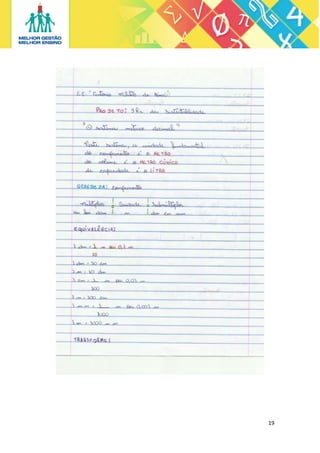 MELHOR GESTÃO
MELHOR ENSINO
PROJETO: 3Rs da Sustentabilidade
"O sistema métrico decimal"
Neste sistema, a unidade fundamental
de comprimento é o METRO
de volume é o METRO CÚBICO
de capacidade é o LITRO
GRANDEZA: comprimento
múltiplos unidade submúltiplos
km hm dam m dm cm mm
EQUIVALÊNCIAS
1 dm = 1 m ou 0,1 m
10
1 dam = 10 m
1 m = 10 dm
1 cm = 1 m ou 0,01 m
100
1 m = 100 cm
1 mm = 1 m ou 0,001 m
1000
1 m = 1000 mm
TRANSFORME:
19